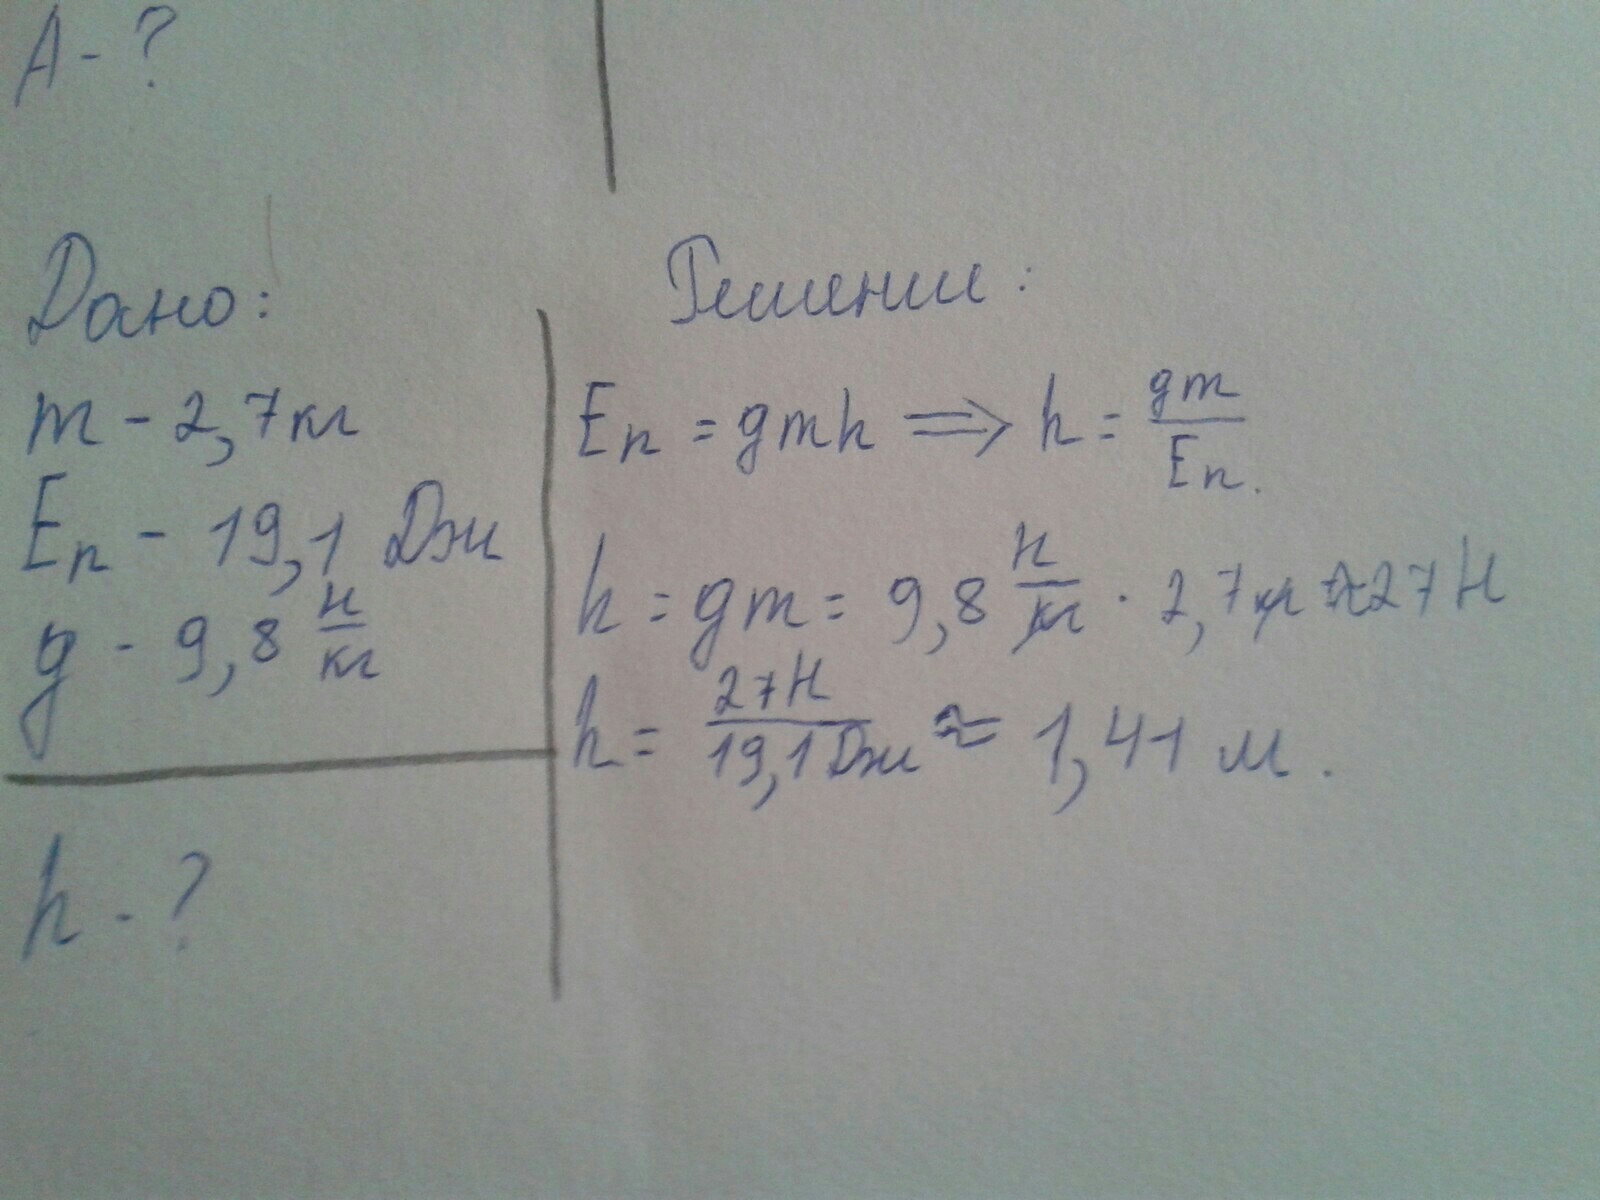 A - ?
Дано:
m - 2,7 кг
Eп - 19,1 Дж
g - 9,8 Н/кг
h - ?
Решение:
Eп = gmh ⟹ h = gm/Eп.
h = gm = 9,8 Н/кг · 2,7 кг ≈ 27 Н
h = 27 Н/19,1 Дж ≈ 1,41 м.